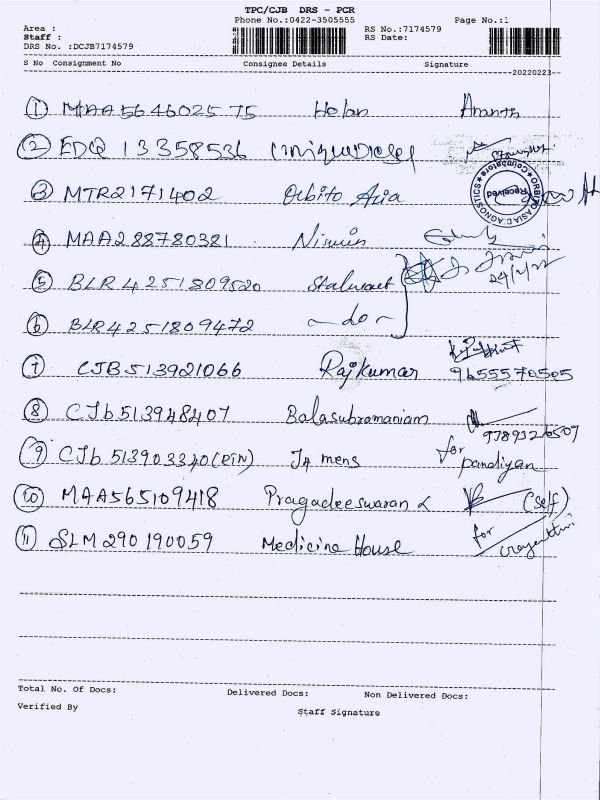 TPC/CJB DRS - PCR
Phone No.:0422-3505555 Page No.:1
Area :
Staff :
DRS No. :DCJB7174579
RS No.:7174579
RS Date:
S No Consignment No Consignee Details Signature
20220223
1 MAA564602575 Helan Ananth
2 EDQ 13358536
3 MTR2171402 Orbito Asia
ORBITO ASIA DIAGNOSTICS Coimbatore Received
4 MAA288780381
5 BLR4251809520 Stalwart
6 BLR4251809472 -do-
7 CJB513921066 Rajkumar 9655570505
8 CJb513948407 Balasubramaniam 9789326509
9 CJb513903340(PIN) J4 mens for pandiyan
10 MAA565109418 Pragadeeswaran (self)
11 SLM290190059 Medicine House for
Total No. Of Docs: Delivered Docs: Non Delivered Docs:
Verified By
Staff Signature